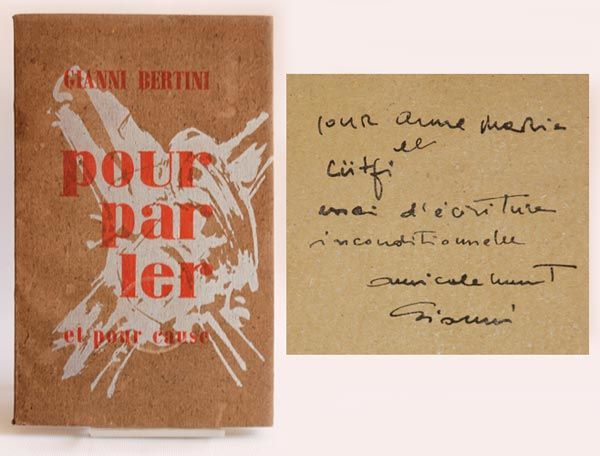 GIANNI BERTINI
pour
par
ler
et pour cause
pour anna maria
et
Lütfi
essai d'écriture
inconditionnelle
amicalement
Gianni